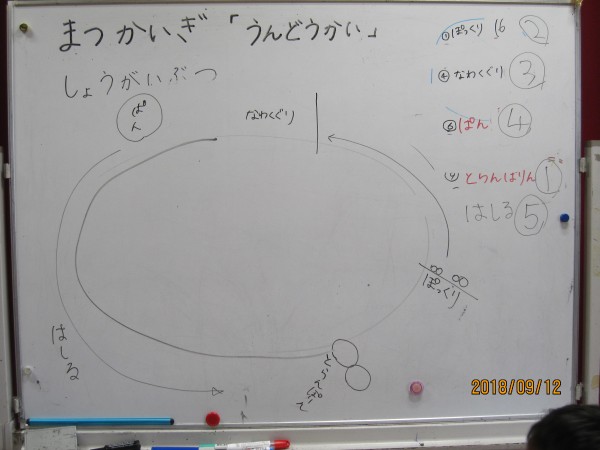 まつかいぎ「うんどうかい」
しょうがいぶつ
ぱん
なわくぐり
①ぽっくり 16 ②
1 ④なわくぐり ③
⑥ぱん ④
とらんぽりん ①
はしる ⑤
ぽっくり
はしる
2018/09/12